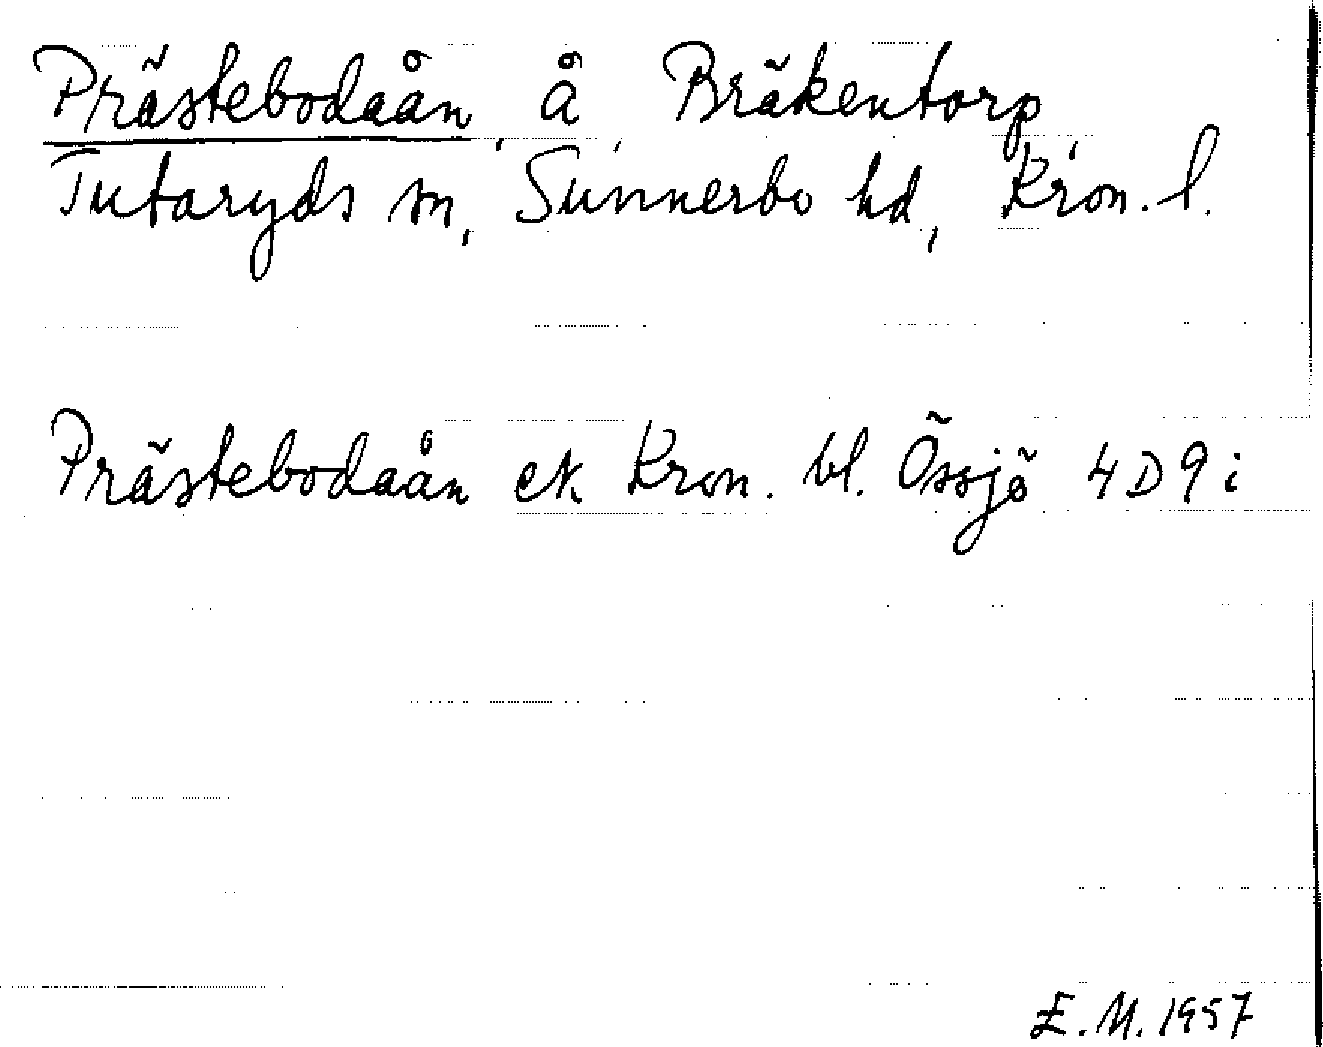 Prästebodaån, å, Bräkentorp,
Tutaryds sn, Sunnerbo hd, Kron. l.
Prästebodaån ek Kron. bl. Össjö 4D9i
E.M. 1957